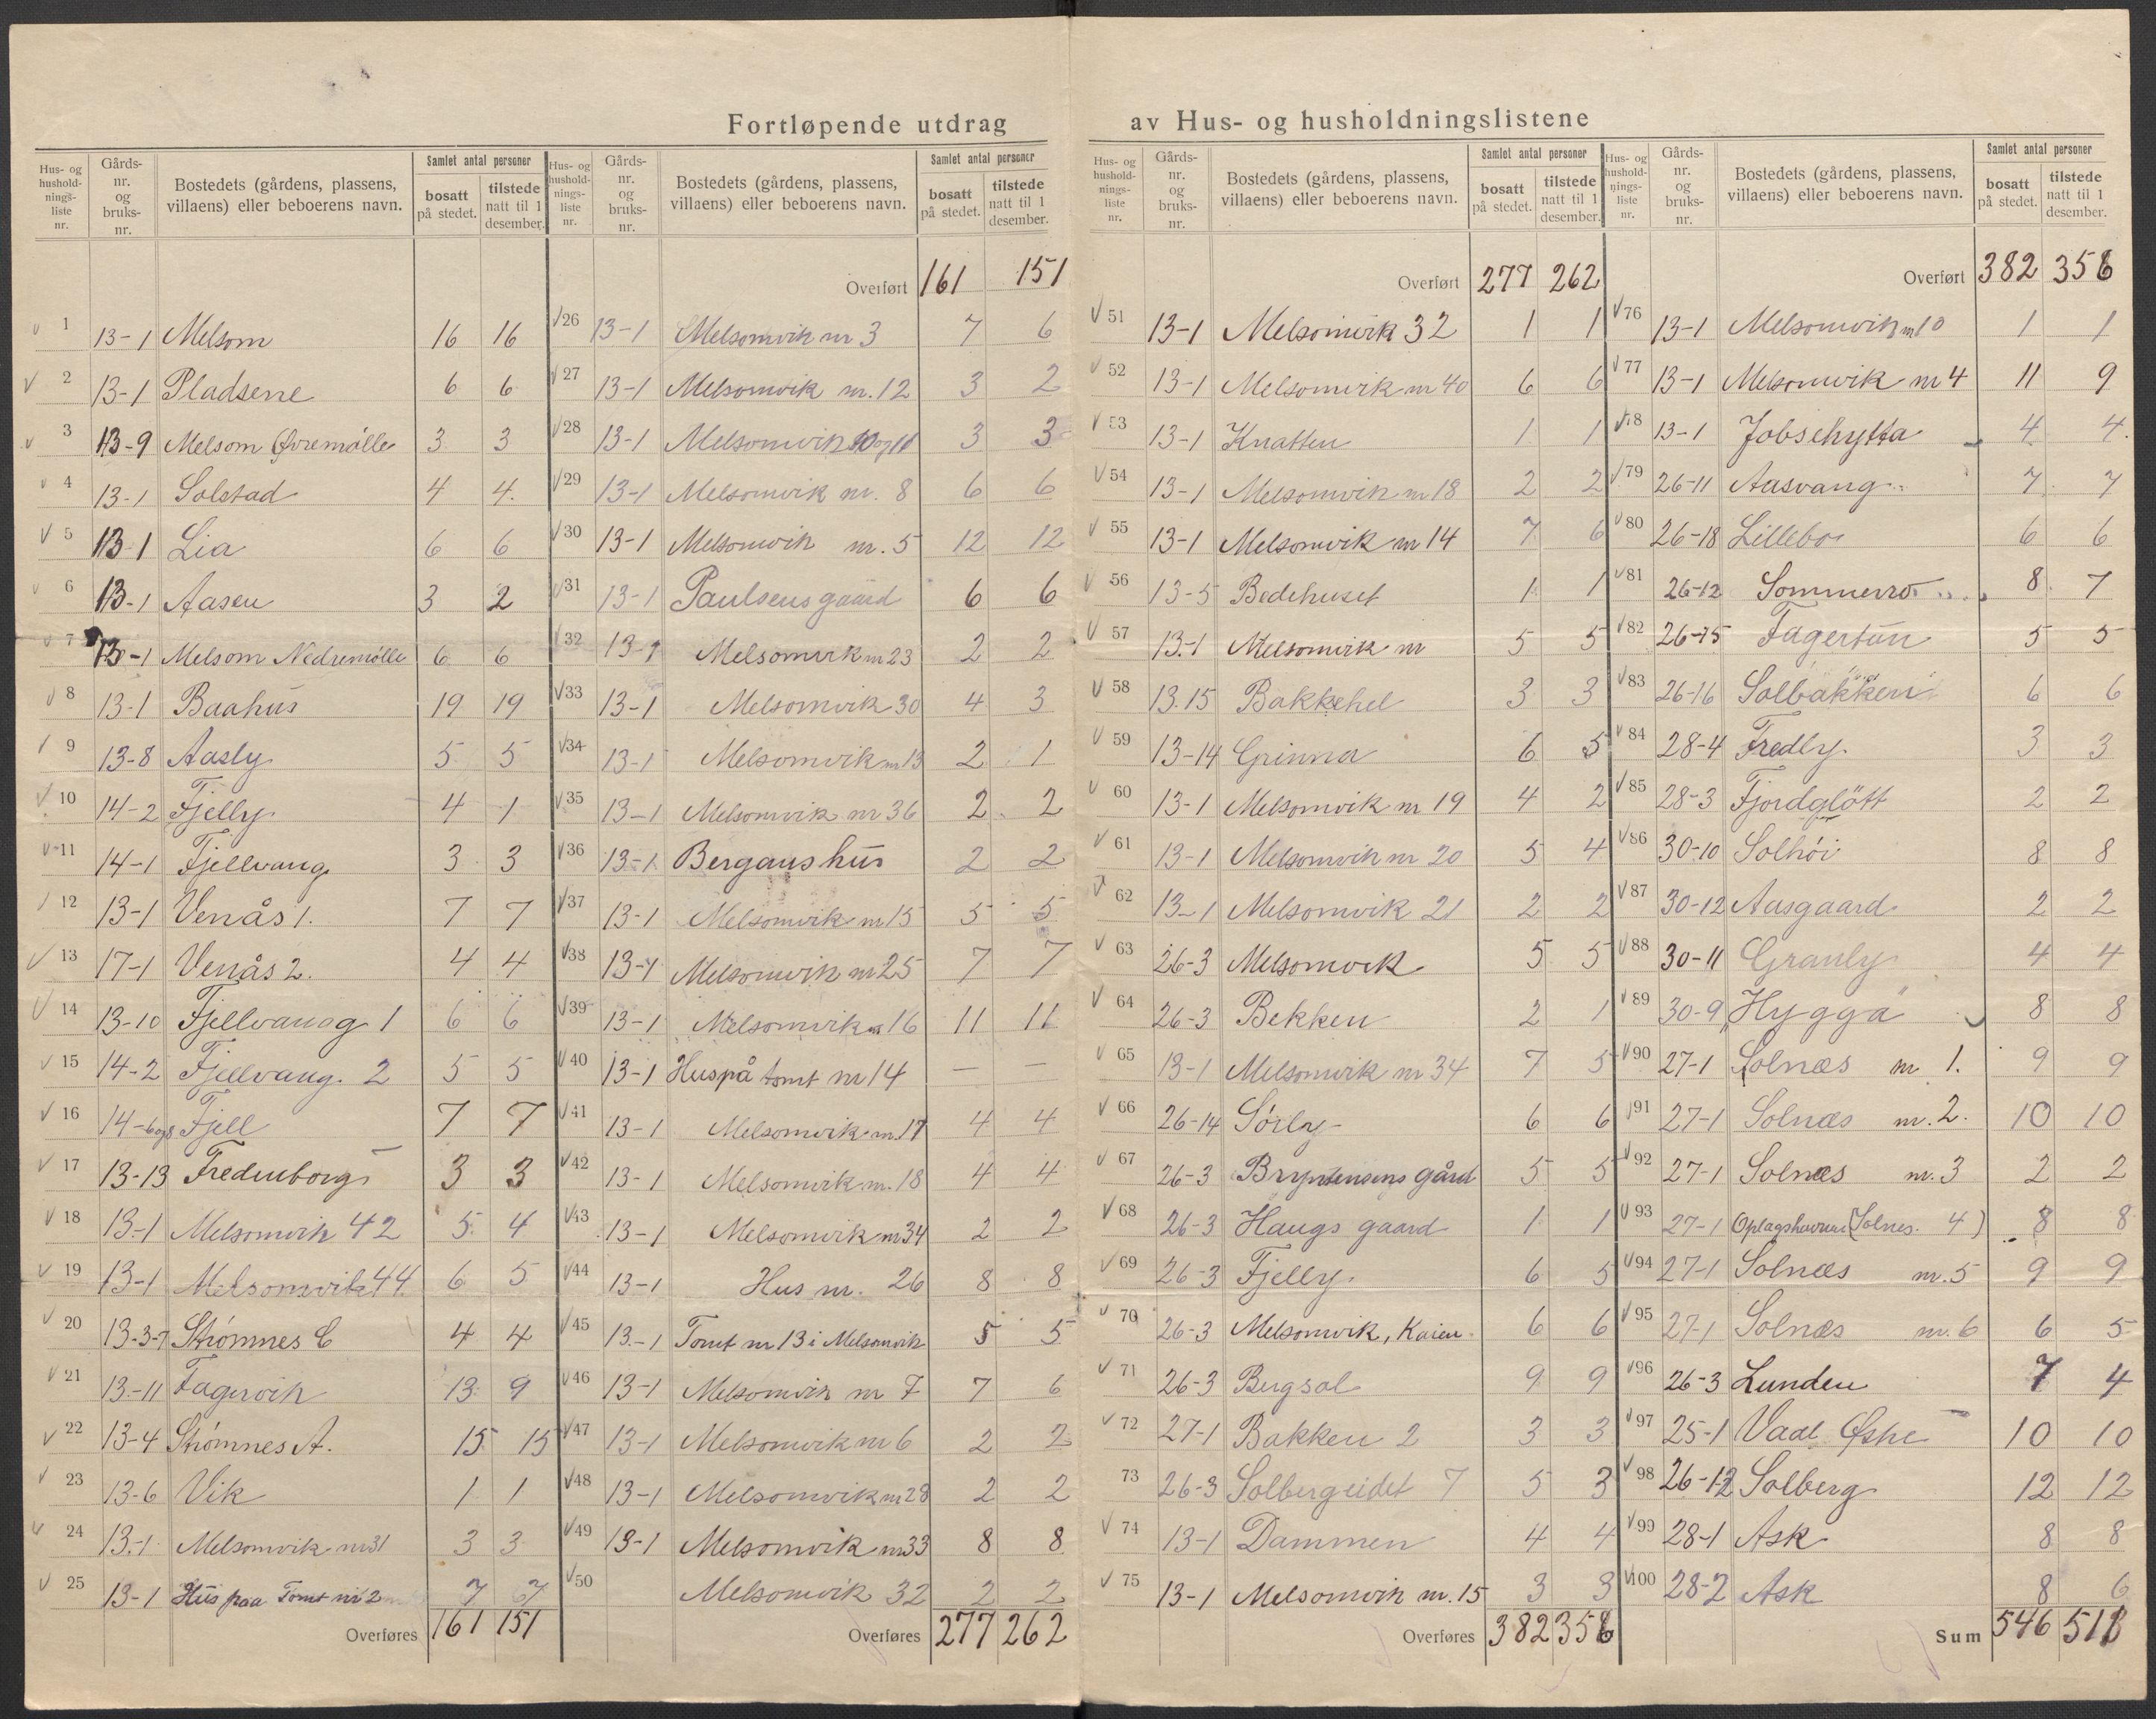 Fortløpende utdrag av Hus- og husholdningslistene
Hus- og husholdningsliste nr. | Gårdsnr. og bruksnr. | Bostedets (gårdens, plassens, villaens) eller beboerens navn. | Samlet antal personer bosatt på stedet. | tilstede natt til 1 desember.
1 13-1 Melsom 16 16
2 13-1 Pladsene 6 6
3 13-9 Melsom Øvremølle 3 3
4 13-1 Solstad 4 4
5 13-1 Lia 6 6
6 13-1 Aasen 3 2
7 13-1 Melsom Nedremølle 6 6
8 13-1 Baahus 19 19
9 13-8 Aasly 5 5
10 14-2 Fjelly 4 1
11 14-1 Fjellvang 3 3
12 13-1 Venås 1. 7 7
13 17-1 Venås 2. 4 4
14 13-10 Fjellvang 1 6 6
15 14-2 Fjellvang. 2 5 5
16 14-6og8 Fjell 7 7
17 13-13 Fredensborg 3 3
18 13-1 Melsomvik 42 5 4
19 13-1 Melsomvik 44 6 5
20 13-3-7 Strömnes C 4 4
21 13-11 Fagervik 13 9
22 13-4 Strömnes A. 15 15
23 13-6 Vik 1 1
24 13-1 Melsomvik nr 31 3 3
25 13-1 Hus paa Tomt nr 2 7 7
Overføres 161 151
Hus- og husholdningsliste nr. | Gårdsnr. og bruksnr. | Bostedets (gårdens, plassens, villaens) eller beboerens navn. | Samlet antal personer bosatt på stedet. | tilstede natt til 1 desember.
Overført 161 151
26 13-1 Melsomvik nr 3 7 6
27 13-1 Melsomvik nr. 12 3 2
28 13-1 Melsomvik 10 og 11 3 3
29 13-1 Melsomvik nr. 8 6 6
30 13-1 Melsomvik nr. 5 12 12
31 13-1 Paulsens gaard 6 6
32 13-1 Melsomvik nr 23 2 2
33 13-1 Melsomvik 30 4 3
34 13-1 Melsomvik nr 13 2 1
35 13-1 Melsomvik nr 36 2 2
36 13-1 Bergans hus 2 2
37 13-1 Melsomvik nr 15 5 5
38 13-1 Melsomvik nr 25 7 7
39 13-1 Melsomvik nr 16 11 11
40 13-1 Hus på tomt nr 14 — —
41 13-1 Melsomvik nr. 17 4 4
42 13-1 Melsomvik nr. 18 4 4
43 13-1 Melsomvik nr 34 2 2
44 13-1 Hus nr. 26 8 8
45 13-1 Tomt nr 13 i Melsomvik 5 5
46 13-1 Melsomvik nr 7 7 6
47 13-1 Melsomvik nr 6 2 2
48 13-1 Melsomvik nr 28 2 2
49 13-1 Melsomvik nr 33 8 8
50 Melsomvik 32 2 2
Overføres 277 262
Hus- og husholdningsliste nr. | Gårdsnr. og bruksnr. | Bostedets (gårdens, plassens, villaens) eller beboerens navn. | Samlet antal personer bosatt på stedet. | tilstede natt til 1 desember.
Overført 277 262
51 13-1 Melsomvik 32 1 1
52 13-1 Melsomvik nr 40 6 6
53 13-1 Knatten 1 1
54 13-1 Melsomvik nr 18 2 2
55 13-1 Melsomvik nr 14 7 6
56 13-5 Bedehuset 1 1
57 13-1 Melsomvik nr 5 5
58 13.15 Bakkehel 3 3
59 13-14 Grinna 6 5
60 13-1 Melsomvik nr 19 4 2
61 13-1 Melsomvik nr 20 5 4
62 13-1 Melsomvik 21 2 2
63 26-3 Melsomvik 5 5
64 26-3 Bekken 2 1
65 13-1 Melsomvik nr 34 7 5
66 26-14 Sörly 6 6
67 26-3 Bryntensens gård 5 5
68 26-3 Haugs gaard 1 1
69 26-3 Fjelly. 6 5
70 26-3 Melsomvik, Kaien 6 6
71 26-3 Bergsol 9 9
72 27-1 Bakken 2 3 3
73 26-3 Solbergeidet 7 5 3
74 13-1 Dammen 4 4
75 13-1 Melsomvik nr. 15 3 3
Overføres 382 358
Hus- og husholdningsliste nr. | Gårdsnr. og bruksnr. | Bostedets (gårdens, plassens, villaens) eller beboerens navn. | Samlet antal personer bosatt på stedet. | tilstede natt til 1 desember.
Overført 382 358
76 13-1 Melsomvik nr 10 1 1
77 13-1 Melsomvik nr 4 11 9
78 13-1 Jobsehytta 4 4
79 26-11 Aasvang 7 7
80 26-18 Lillebo 6 6
81 26-12 Sommerro 8 7
82 26-15 Fagertun 5 5
83 26-16 Solbakken 6 6
84 28-4 Fredly. 3 3
85 28-3 Fjordglött 2 2
86 30-10 Solhöi 8 8
87 30-12 Aasgaard 2 2
88 30-11 Granly 4 4
89 30-9 "Hygga" 8 8
90 27-1 Solnæs nr 1. 9 9
91 27-1 Solnæs nr. 2. 10 10
92 27-1 Solnæs nr. 3 2 2
93 27-1 Oplagshavnen (Solnes. 4) 8 8
94 27-1 Solnæs nr. 5 9 9
95 27-1 Solnæs nr. 6 6 5
96 26-3 Lunden 7 4
97 25-1 Vaal Østre 10 10
98 26-12 Solberg 12 12
99 28-1 Ask 8 8
100 28-2 Ask 8 6
Sum 546 518